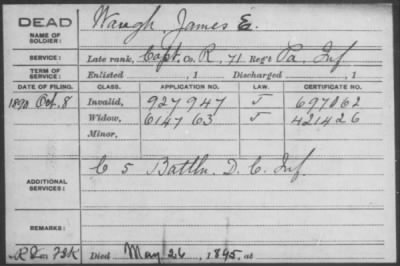 DEAD
NAME OF SOLDIER: Waugh, James E.
SERVICE: Late rank, Capt. Co. R, 71 Reg't Pa. Inf
TERM OF SERVICE: Enlisted , 1 Discharged , 1
DATE OF FILING. CLASS. APPLICATION NO. LAW. CERTIFICATE NO.
1890 Oct. 8 Invalid, 927947 J 697062
Widow, 614763 J 421426
Minor,
ADDITIONAL SERVICES: C 5 Battln. D. C. Inf.
REMARKS:
Died May 26, 1895, at